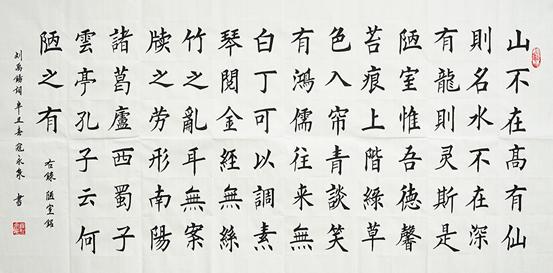 山不在高有仙
則名水不在深
有龍則灵斯是
陋室惟吾德馨
苔痕上階綠草
色入帘青談笑
有鴻儒往来無
白丁可以調素
琴閱金經無絲
竹之亂耳無案
牘之劳形南陽
諸葛廬西蜀子
雲亭孔子云何
陋之有
右錄陋室銘
刘禹錫詞辛丑春
書